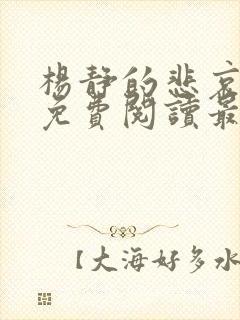 楊靜的悲哀
免費閱讀最
【大海好多水